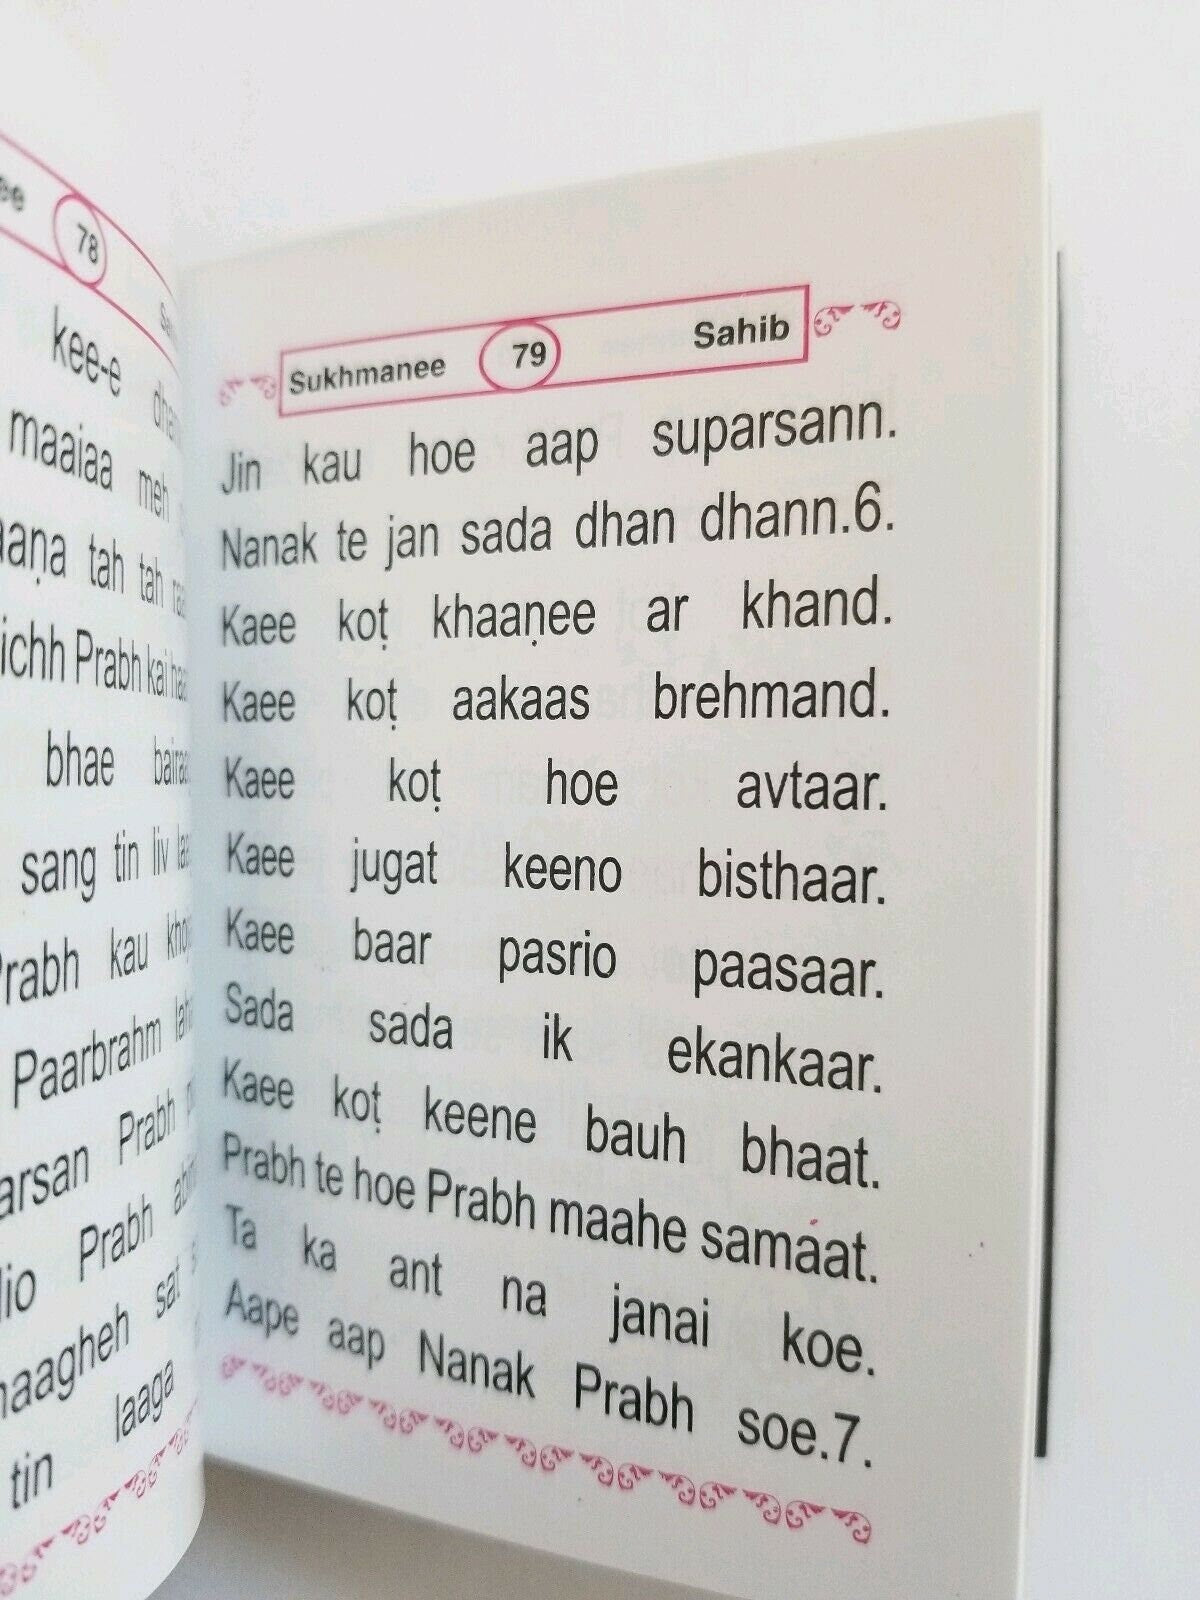 78
kee-e
maaiaa meh
tah tah
Prabh kai
bhae
sang tin liv
kau
Paarbrahm
Prabh
Prabh
sat
laaga
tin
Sukhmanee 79 Sahib
Jin kau hoe aap suparsann.
Nanak te jan sada dhan dhann.6.
Kaee koṭ khaaṇee ar khand.
Kaee koṭ aakaas brehmand.
Kaee koṭ hoe avtaar.
Kaee jugat keeno bisthaar.
Kaee baar pasrio paasaar.
Sada sada ik ekankaar.
Kaee koṭ keene bauh bhaat.
Prabh te hoe Prabh maahe samaat.
Ta ka ant na janai koe.
Aape aap Nanak Prabh soe.7.